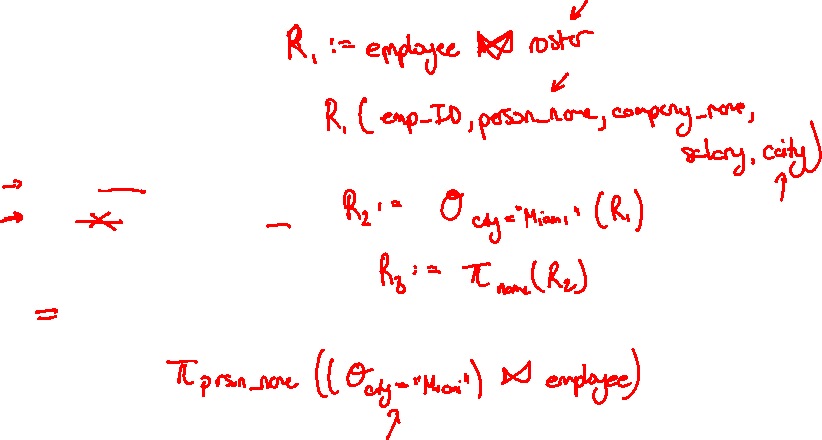 R₁ := employee ⋈ roster
R₁ ( emp_ID, person_name, company_name,
salary, ccity)
R₂ := σ city = "Miami" (R₁)
R₃ := π name (R₂)
=
π prsn_name ((σ city = "Miami") ⋈ employee)